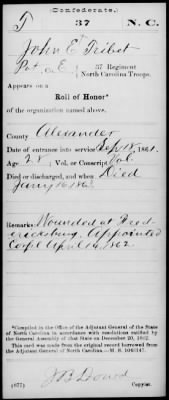 (Confederate.)
T 37 N. C.
John E Tribet
Pvt, Co. E, 37 Regiment
North Carolina Troops.
Appears on a
Roll of Honor*
of the organization named above.
County Alexander
Date of entrance into service Sept 18, 1861.
Age 28; Vol. or Conscript Vol.
Died or discharged, and when: Died
Jany 16 1863
Remarks: Wounded at Fred-
ericksburg, Appointed
Corpl April 14, 1862
*Compiled in the Office of the Adjutant General of the State
of North Carolina in accordance with resolutions ratified by
the General Assembly of that State on December 20, 1862.
This card was made from the original record borrowed from
the Adjutant General of North Carolina.—M. S.
(677) J B Dowd
Copyist.